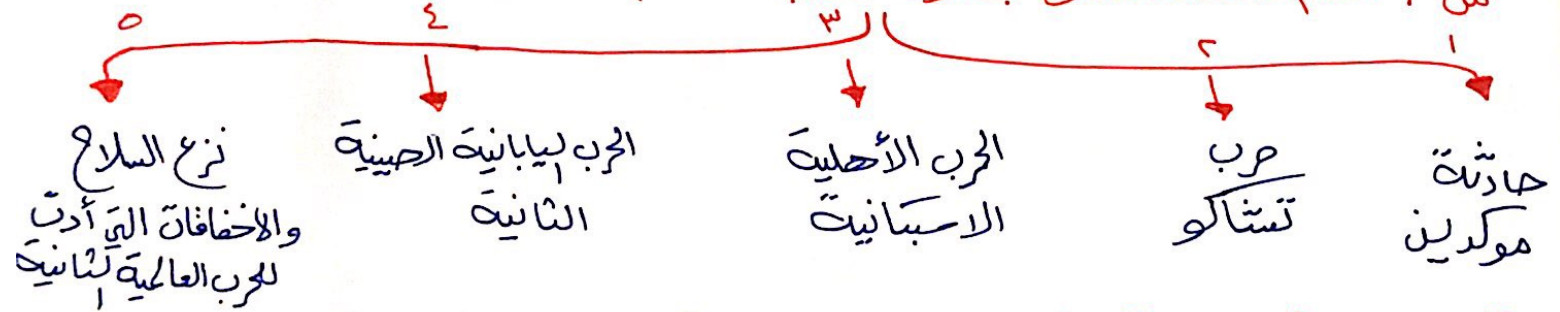 ١ ٢ ٣ ٤ ٥
حادثة
موكدين
حرب
تشاكو
الحرب الأهلية
الاسبانية
الحرب اليابانية الصينية
الثانية
نزع السلاح
والاخفاقات التي أدت
للحرب العالمية الثانية